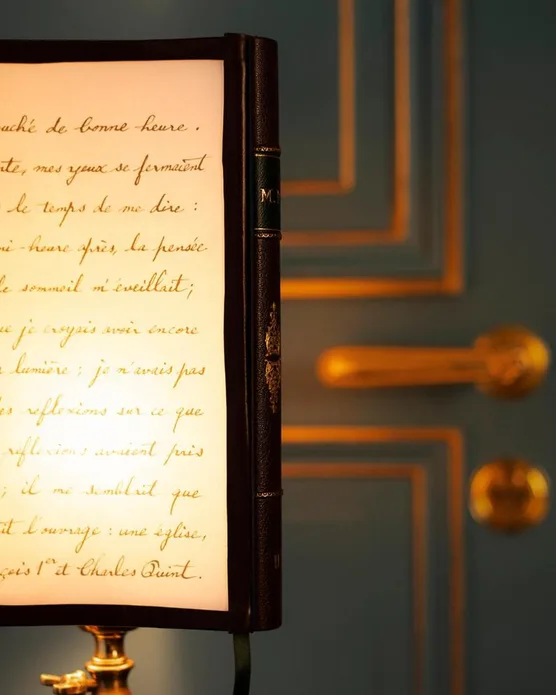 ouché de bonne heure.
te, mes yeux se fermaient
le temps de me dire :
mi-heure après, la pensée
le sommeil m'éveillait;
ue je croyais avoir encore
lumière ; je n'avais pas
es reflexions sur ce que
reflexions avaient pris
; il me semblait que
it l'ouvrage : une église,
çois 1er et Charles Quint.
M.